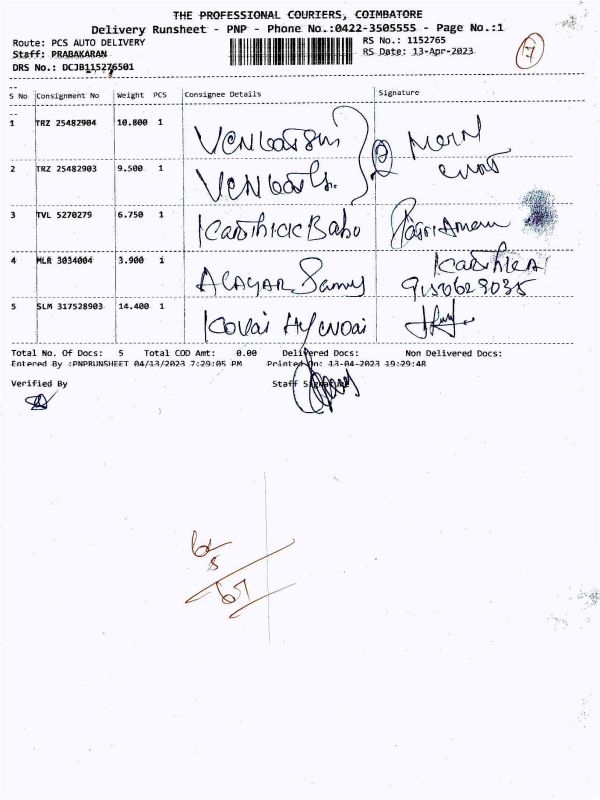 THE PROFESSIONAL COURIERS, COIMBATORE
Delivery Runsheet - PNP - Phone No.:0422-3505555 - Page No.:1
Route: PCS AUTO DELIVERY RS No.: 1152765
Staff: PRABAKARAN RS Date: 13-Apr-2023
DRS No.: DCJB115276501
7
S No Consignment No Weight PCS Consignee Details Signature
1 TRZ 25482904 10.800 1
2 TRZ 25482903 9.500 1
2
3 TVL 5270279 6.750 1 Karthick Babo
4 MLR 3034004 3.900 1 ALAGAR Samy
5 SLM 317528903 14.400 1 Kovai
Total No. Of Docs: 5 Total COD Amt: 0.00 Delivered Docs: Non Delivered Docs:
Entered By :PNPRUNSHEET 04/13/2023 7:29:05 PM Printed On: 13-04-2023 19:29:48
Verified By Staff Signature
62
5
67